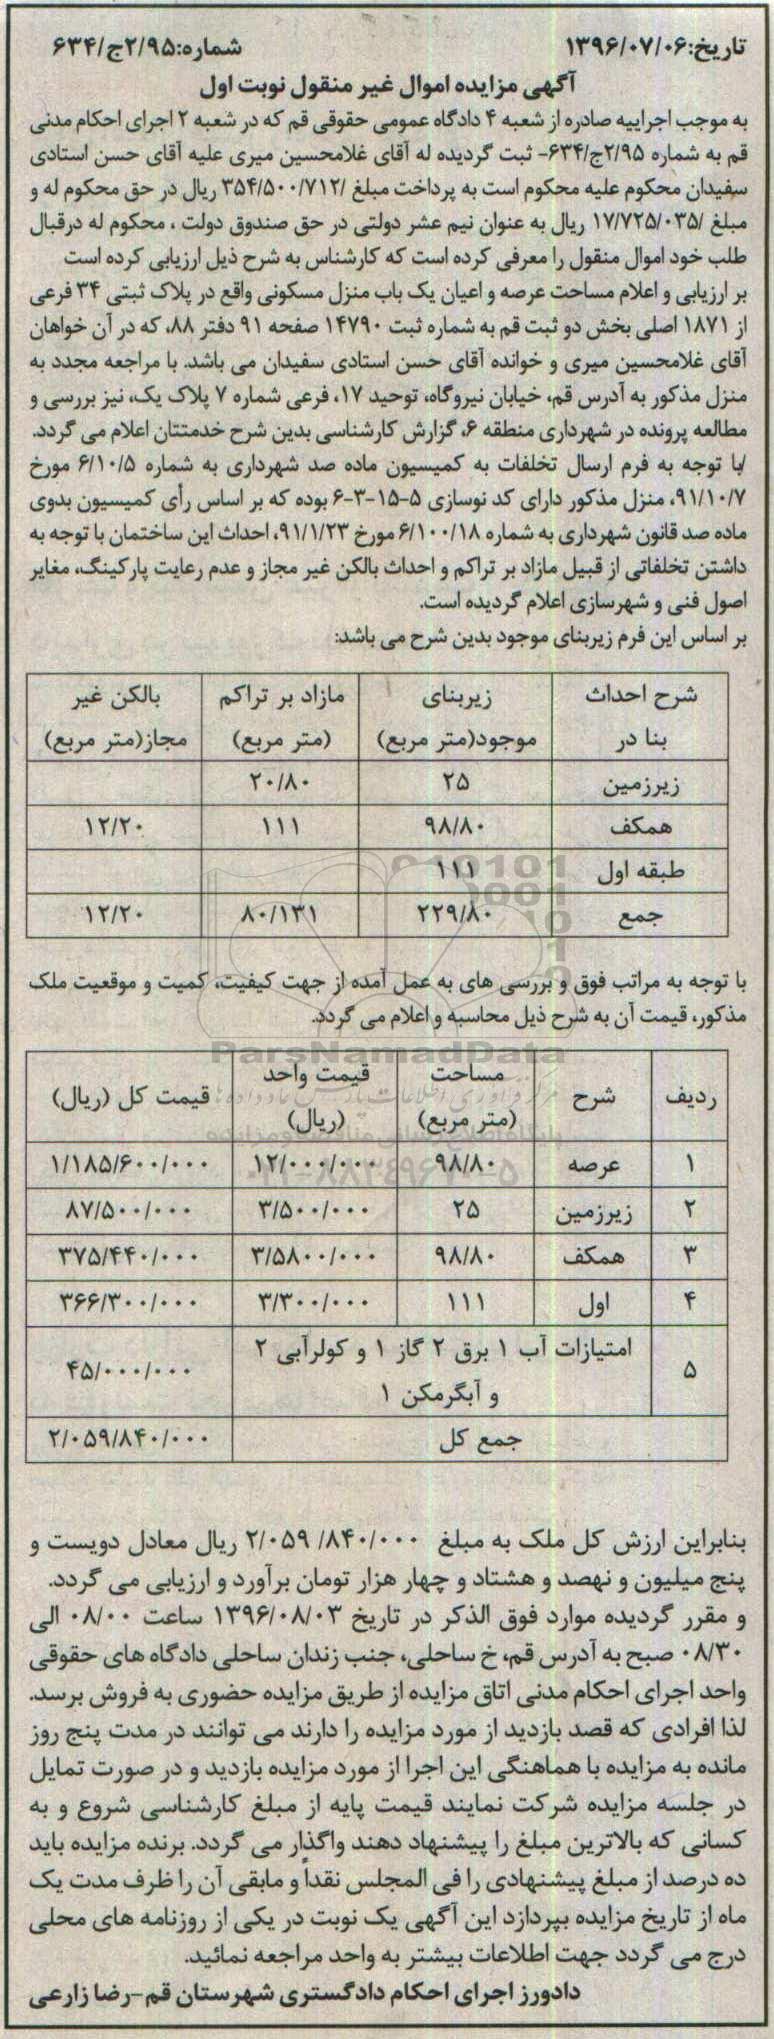 تاریخ:۱۳۹۶/۰۷/۰۶ شماره:۲/۹۵ج/۶۳۴
آگهی مزایده اموال غیر منقول نوبت اول
به موجب اجراییه صادره از شعبه ۴ دادگاه عمومی حقوقی قم که در شعبه ۲ اجرای احکام مدنی
قم به شماره ۲/۹۵ج/۶۳۴- ثبت گردیده له آقای غلامحسین میری علیه آقای حسن استادی
سفیدان محکوم علیه محکوم است به پرداخت مبلغ /۳۵۴/۵۰۰/۷۱۲ ریال در حق محکوم له و
مبلغ /۱۷/۷۲۵/۰۳۵ ریال به عنوان نیم عشر دولتی در حق صندوق دولت ، محکوم له درقبال
طلب خود اموال منقول را معرفی کرده است که کارشناس به شرح ذیل ارزیابی کرده است
بر ارزیابی و اعلام مساحت عرصه و اعیان یک باب منزل مسکونی واقع در پلاک ثبتی ۳۴ فرعی
از ۱۸۷۱ اصلی بخش دو ثبت قم به شماره ثبت ۱۴۷۹۰ صفحه ۹۱ دفتر ۸۸، که در آن خواهان
آقای غلامحسین میری و خوانده آقای حسن استادی سفیدان می باشد. با مراجعه مجدد به
منزل مذکور به آدرس قم، خیابان نیروگاه، توحید ۱۷، فرعی شماره ۷ پلاک یک، نیز بررسی و
مطالعه پرونده در شهرداری منطقه ۶، گزارش کارشناسی بدین شرح خدمتتان اعلام می گردد.
/با توجه به فرم ارسال تخلفات به کمیسیون ماده صد شهرداری به شماره ۶/۱۰/۵ مورخ
۹۱/۱۰/۷، منزل مذکور دارای کد نوسازی ۵-۱۵-۳-۶ بوده که بر اساس رأی کمیسیون بدوی
ماده صد قانون شهرداری به شماره ۶/۱۰۰/۱۸ مورخ ۹۱/۱/۲۳، احداث این ساختمان با توجه به
داشتن تخلفاتی از قبیل مازاد بر تراکم و احداث بالکن غیر مجاز و عدم رعایت پارکینگ، مغایر
اصول فنی و شهرسازی اعلام گردیده است.
بر اساس این فرم زیربنای موجود بدین شرح می باشد:
شرح احداث زیربنای مازاد بر تراکم بالکن غیر
بنا در موجود(متر مربع) (متر مربع) مجاز(متر مربع)
زیرزمین ۲۵ ۲۰/۸۰
همکف ۹۸/۸۰ ۱۱۱ ۱۲/۲۰
طبقه اول ۱۱۱
جمع ۲۲۹/۸۰ ۸۰/۱۳۱ ۱۲/۲۰
با توجه به مراتب فوق و بررسی های به عمل آمده از جهت کیفیت، کمیت و موقعیت ملک
مذکور، قیمت آن به شرح ذیل محاسبه و اعلام می گردد.
ParsNamadData
ردیف شرح مساحت (متر مربع) قیمت واحد (ریال) قیمت کل (ریال)
۱ عرصه ۹۸/۸۰ ۱۲/۰۰۰/۰۰۰ ۱/۱۸۵/۶۰۰/۰۰۰
۲ زیرزمین ۲۵ ۳/۵۰۰/۰۰۰ ۸۷/۵۰۰/۰۰۰
۳ همکف ۹۸/۸۰ ۳/۵۸۰۰/۰۰۰ ۳۷۵/۴۴۰/۰۰۰
۴ اول ۱۱۱ ۳/۳۰۰/۰۰۰ ۳۶۶/۳۰۰/۰۰۰
۵ امتیازات آب ۱ برق ۲ گاز ۱ و کولرآبی ۲ ۴۵/۰۰۰/۰۰۰
و آبگرمکن ۱
جمع کل ۲/۰۵۹/۸۴۰/۰۰۰
بنابراین ارزش کل ملک به مبلغ ۲/۰۵۹ /۸۴۰/۰۰۰ ریال معادل دویست و
پنج میلیون و نهصد و هشتاد و چهار هزار تومان برآورد و ارزیابی می گردد.
و مقرر گردیده موارد فوق الذکر در تاریخ ۱۳۹۶/۰۸/۰۳ ساعت ۰۸/۰۰ الی
۰۸/۳۰ صبح به آدرس قم، خ ساحلی، جنب زندان ساحلی دادگاه های حقوقی
واحد اجرای احکام مدنی اتاق مزایده از طریق مزایده حضوری به فروش برسد.
لذا افرادی که قصد بازدید از مورد مزایده را دارند می توانند در مدت پنج روز
مانده به مزایده با هماهنگی این اجرا از مورد مزایده بازدید و در صورت تمایل
در جلسه مزایده شرکت نمایند قیمت پایه از مبلغ کارشناسی شروع و به
کسانی که بالاترین مبلغ را پیشنهاد دهند واگذار می گردد. برنده مزایده باید
ده درصد از مبلغ پیشنهادی را فی المجلس نقداً و مابقی آن را ظرف مدت یک
ماه از تاریخ مزایده بپردازد این آگهی یک نوبت در یکی از روزنامه های محلی
درج می گردد جهت اطلاعات بیشتر به واحد مراجعه نمائید.
دادورز اجرای احکام دادگستری شهرستان قم-رضا زارعی